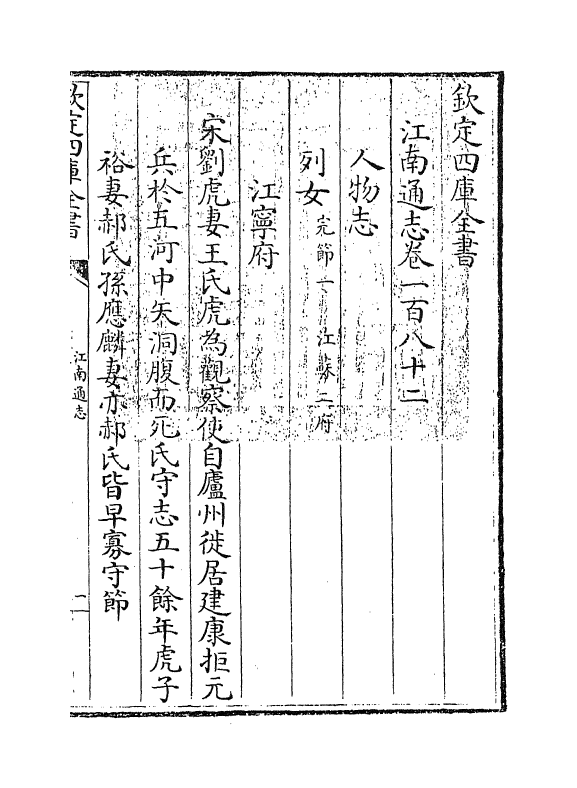 欽定四庫全書
江南通志卷一百八十二
人物志
列女完節一 江蘇二府
江寧府
宋劉虎妻王氏虎為觀察使自廬州徙居建康拒元
兵於五河中矢洞腹而死氏守志五十餘年虎子
裕妻郝氏孫應麟妻亦郝氏皆早寡守節
欽定四庫全書
江南通志